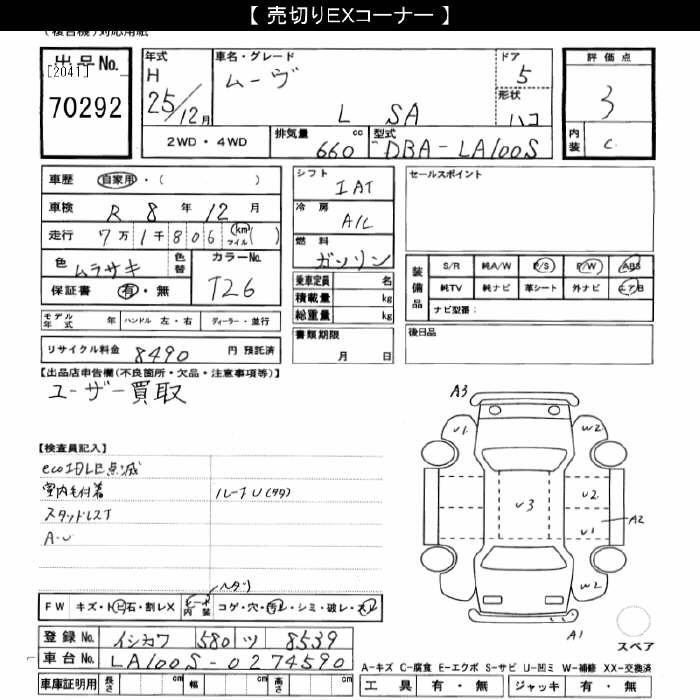 【 売切りEXコーナー 】
(複合機)対応用紙
出品No.
[2041]
70292
年式
H
25/12月
車名・グレード
ムーヴ
L SA
ドア
5
形状
ハコ
評価点
3
内装
C
2WD・4WD
排気量
660 cc
型式
DBA-LA100S
車歴 自家用・( )
車検 R 8年 12月
走行 7万1千806 (km マイル)( )
色 ムラサキ
色替
カラーNo.
T26
保証書 有・無
モデル年式 年 ハンドル 左・右 ディーラー・並行
リサイクル料金 8490 円 預託済
シフト
IAT
冷房
A/C
燃料
ガソリン
乗車定員 名
積載量 kg
総重量 kg
書類期限
月 日
セールスポイント
装備品
S/R 純A/W P/S P/W ABS
純TV 純ナビ 革シート 外ナビ エアB
ナビ型番:
後日品
【出品店申告欄(不良箇所・欠品・注意事項等)】
ユーザー買取
【検査員記入】
eco IDLE点滅
室内毛付着
ルーフU(タタ)
スタッドレスT
A-U
A3
U1
W2
U3
U2
U1
A2
W2
A1
スペア
ヘタリ
FW キズ・トビ石・割レX
シート内装 コゲ・穴・汚レ・シミ・破レ・スレ
登録No. イシカワ 580 ツ 8539
車台No. LA100S-0274590
車庫証明用 長さ cm 幅 cm 高さ cm
A-キズ C-腐食 E-エクボ S-サビ U-凹ミ W-補修 XX-交換済
工具 有・無 ジャッキ 有・無